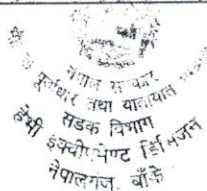 नेपाल सरकार
पूर्वाधार तथा यातायात
सडक विभाग
हेभी इक्वीपमेण्ट डिभिजन
नेपालगंज बाँके